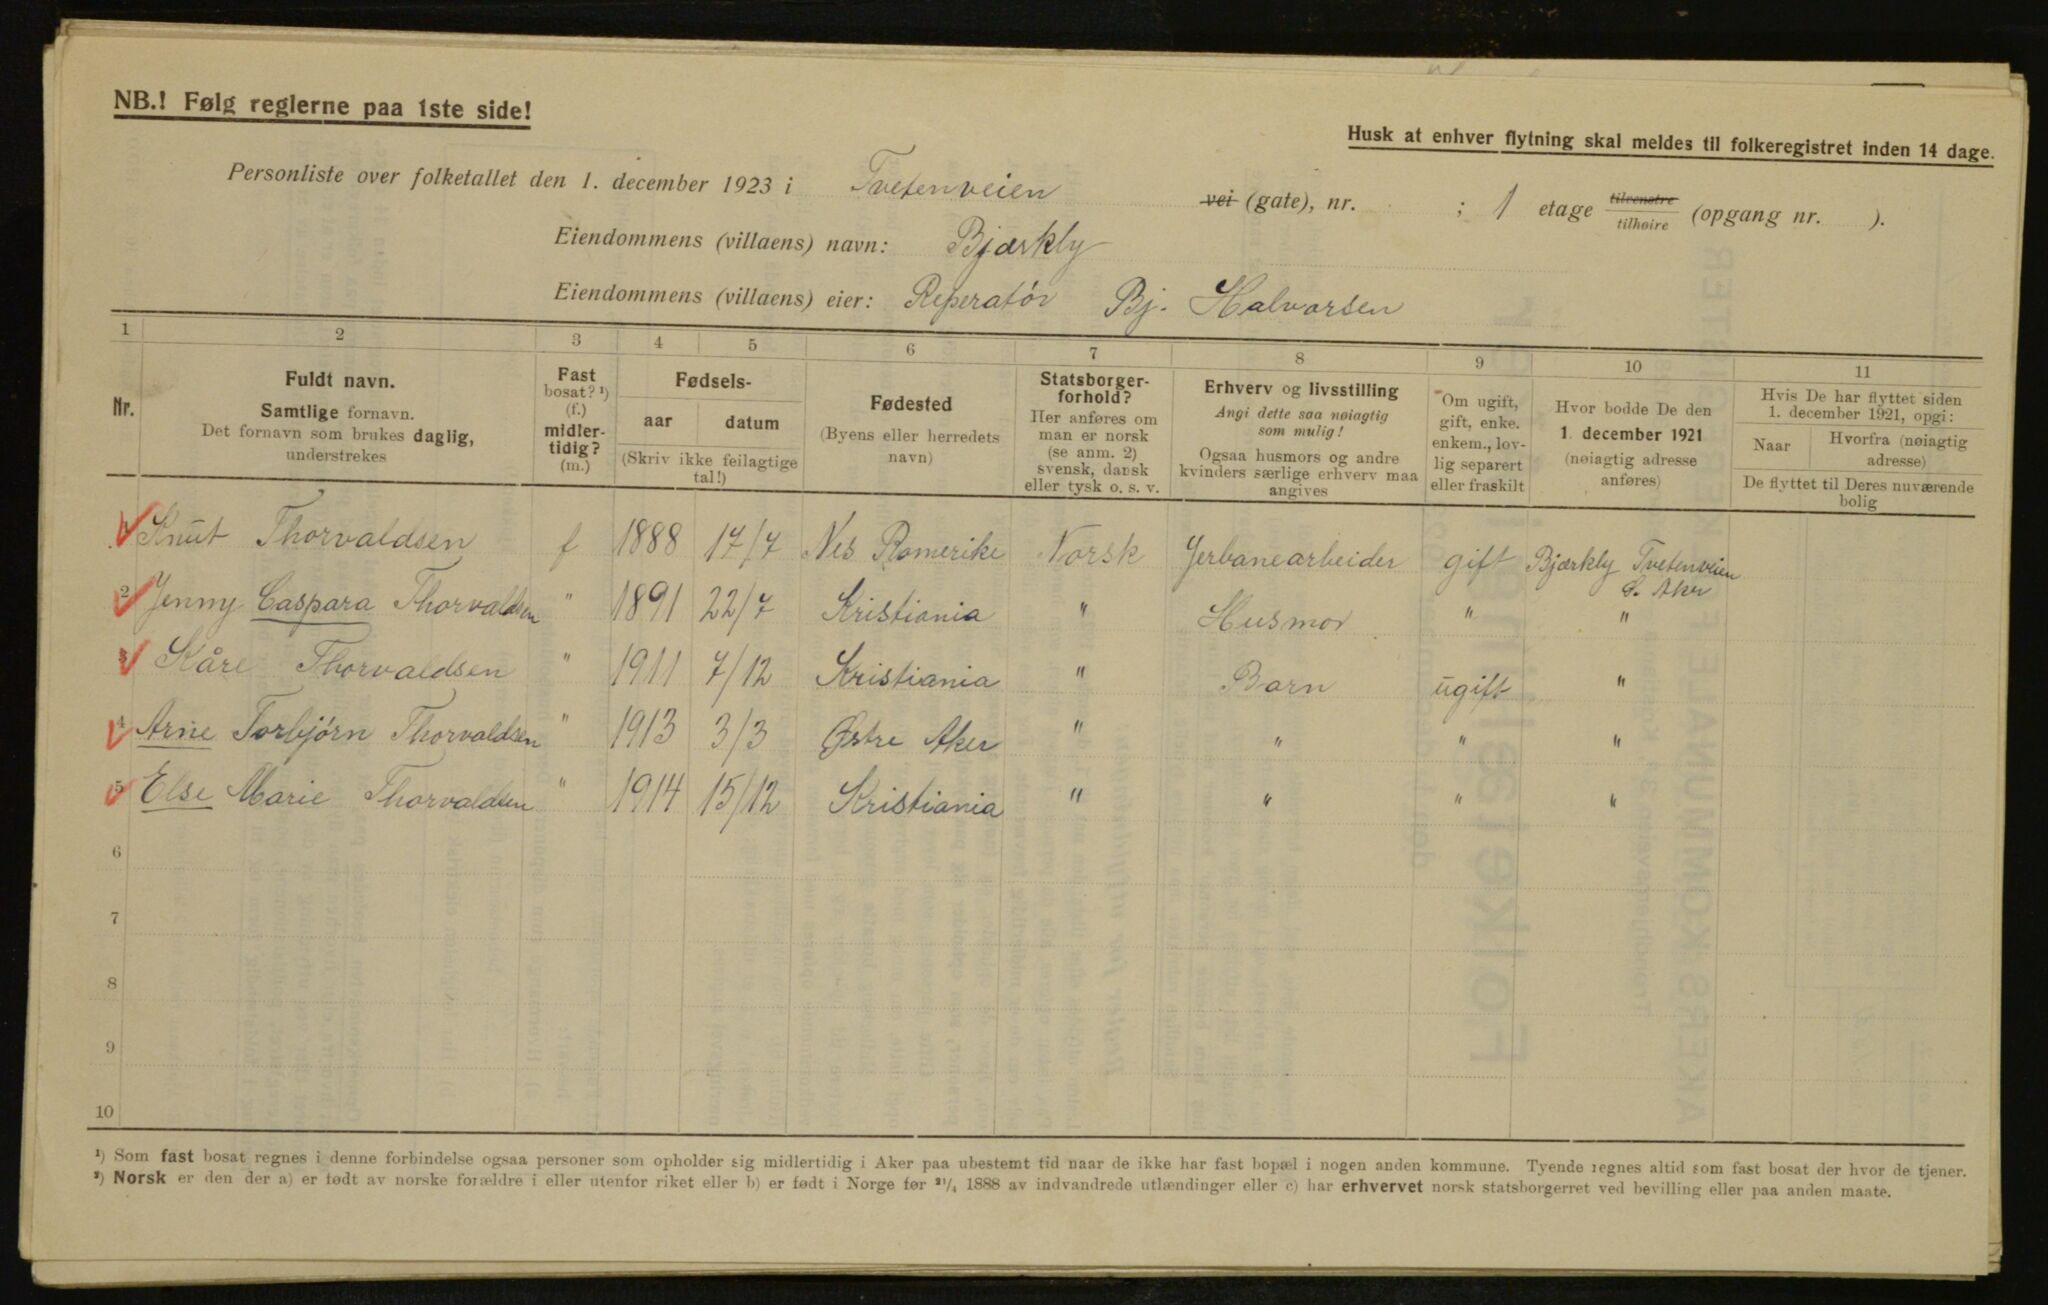 NB.! Følg reglerne paa 1ste side!
Husk at enhver flytning skal meldes til folkeregistret inden 14 dage.
Personliste over folketallet den 1. december 1923 i Tvetenveien vei (gate), nr. ; 1 etage tilvenstre/tilhøire (opgang nr. ).
Eiendommens (villaens) navn: Bjærkly
Eiendommens (villaens) eier: Reperatör Bj. Halvorsen
1 2 3 4 5 6 7 8 9 10 11
Nr.
Fuldt navn.
Samtlige fornavn.
Det fornavn som brukes daglig,
understrekes
Fast
bosat? ¹)
(f.)
midler-
tidig?
(m.)
Fødsels-
aar datum
(Skriv ikke feilagtige
tal!)
Fødested
(Byens eller herredets
navn)
Statsborger-
forhold?
Her anføres om
man er norsk
(se anm. 2)
svensk, dansk
eller tysk o. s. v.
Erhverv og livsstilling
Angi dette saa nøiagtig
som mulig!
Ogsaa husmors og andre
kvinders særlige erhverv maa
angives
Om ugift,
gift, enke.
enkem., lov-
lig separert
eller fraskilt
Hvor bodde De den
1. december 1921
(nøiagtig adresse
anføres)
Hvis De har flyttet siden
1. december 1921, opgi:
Naar Hvorfra (nøiagtig
adresse)
De flyttet til Deres nuværende
bolig
1 Knut Thorvaldsen f 1888 17/7 Nes Romerike Norsk Jerbanearbeider gift Bjærkly Tvetenveien
Ø. Aker
2 Jenny Caspara Thorvaldsen " 1891 22/7 Kristiania " Husmor " "
3 Kåre Thorvaldsen " 1911 7/12 Kristiania " Barn ugift "
4 Arne Torbjörn Thorvaldsen " 1913 3/3 Østre Aker " " " "
5 Else Marie Thorvaldsen " 1914 15/12 Kristiania " " " "
6
7
8
9
10
¹) Som fast bosat regnes i denne forbindelse ogsaa personer som opholder sig midlertidig i Aker paa ubestemt tid naar de ikke har fast bopæl i nogen anden kommune. Tyende regnes altid som fast bosat der hvor de tjener.
²) Norsk er den der a) er født av norske forældre i eller utenfor riket eller b) er født i Norge før ²¹/₄ 1888 av indvandrede utlændinger eller c) har erhvervet norsk statsborgerret ved bevilling eller paa anden maate.